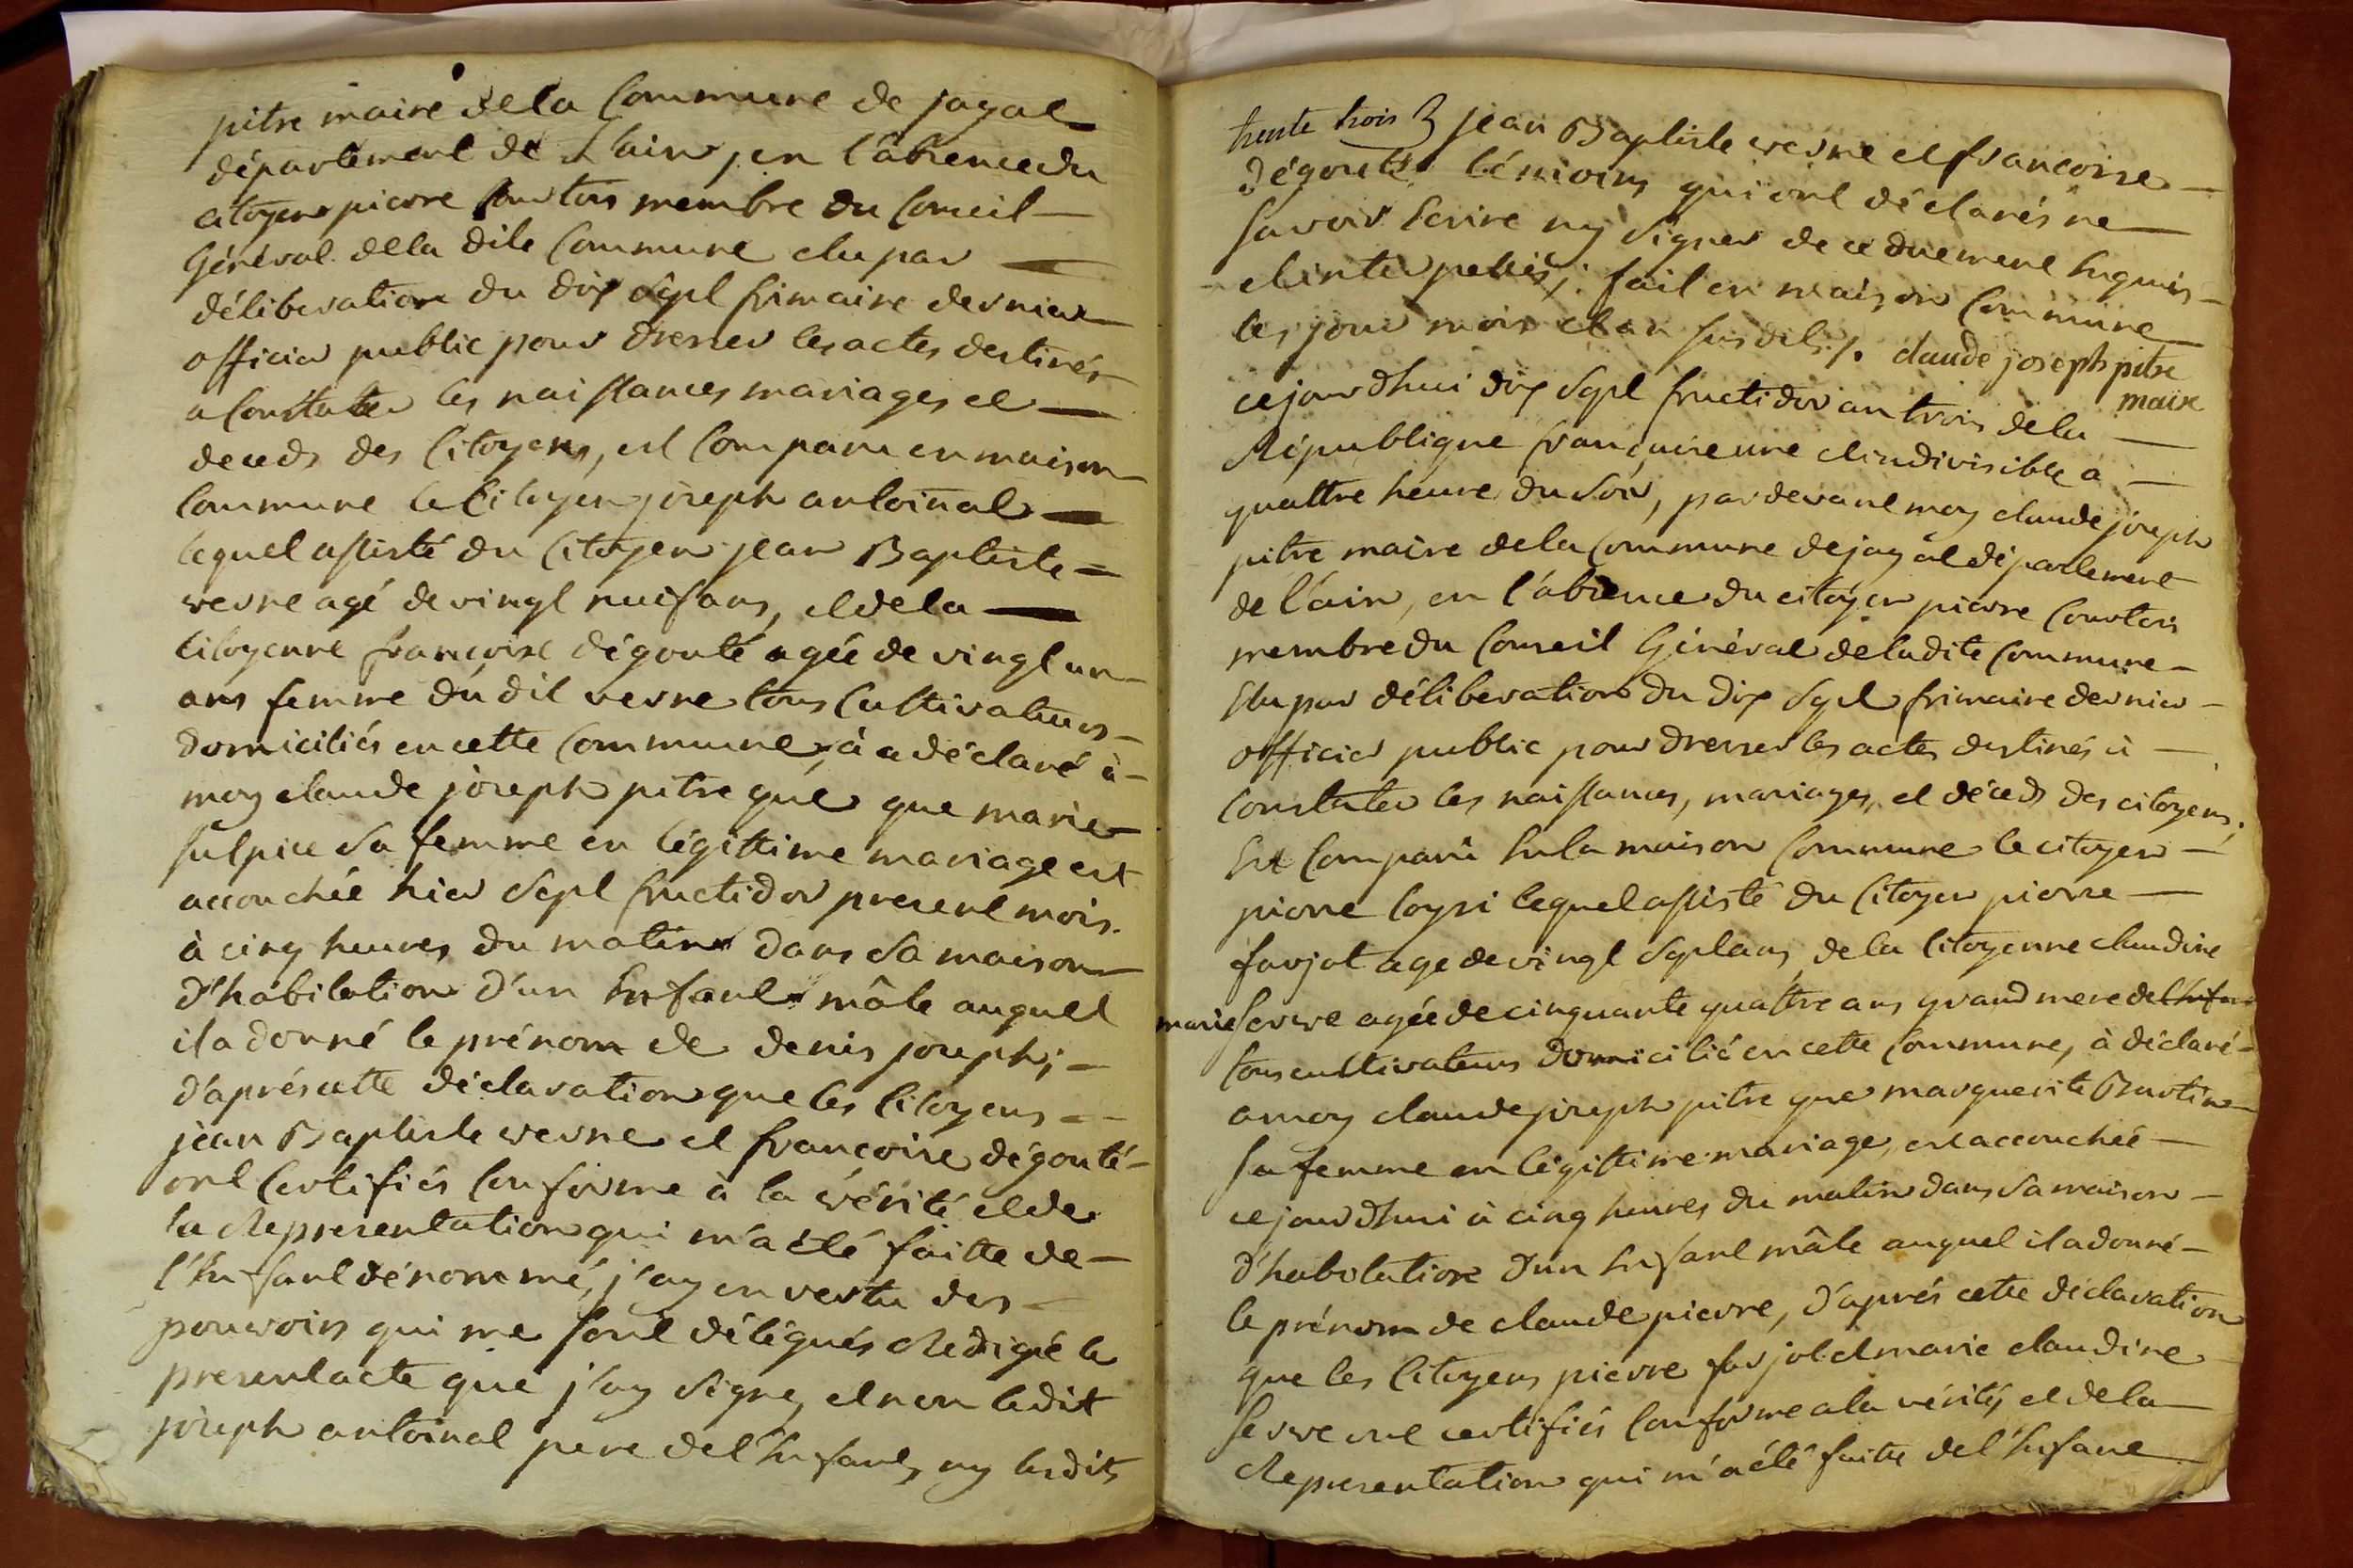 pitre maire de la Commune de jayat
département de L'ain, en l'absence du
citoyen pierre Courtois membre du Conseil
Général de la dite Commune elu par
déliberation du dix sept frimaire dernier
officier public pour dresser les actes destinés
a Constater les naissances mariages et
deceds des Citoyens, est Comparu en maison
Commune le Citoyen joseph antoinat
lequel assisté du Citoyen jean Baptiste =
verne agé de vingt neuf ans, et de la
Citoyenne françoise dégouté agée de vingt un
ans femme du dit verne tous Cultivateurs
domiciliés en cette Commune, à a déclaré à
moy claude joseph pitre que que marie
sulpice Sa femme en légittime mariage est
accouchée hier Sept fructidor present mois.
à cinq heures du matin dans Sa maison
d'habitation d'un Enfant mâle auquel
il a donné le prénom de denis joseph; -
d'aprés cette déclaration que les Citoyens
jean Baptiste verne et françoise dégouté-
ont Certifiés Conforme à la vérité et de
la Representation qui m'a été faitte de -
l'Enfant dénommé, j'ay en vertu des -
pouvoirs qui me sont délégués Redigé le
present acte que j'ay Signé, et non ledit
joseph antoinat pere de l'Enfant, ny lesdits
trente trois 3 jean Baptiste verne et françoise -
dégouté témoins qui ont déclarés ne
savoir Ecrire ny Signer de ce duement Enquis -
et interpellés; fait en maison Commune
les jour mois et an susdits /. claude joseph pitre
maire
cejourdhui dix Sept fructidor an trois de la
République françoise une et indivisible a
quattre heure du Soir, pardevant moy claude joseph
pitre maire de la Commune de jayat département
de l'ain, en l'absence du citoyen pierre Courtois
membre du Conseil Général de ladite Commune -
Elu par déliberation du dix Sept frimaire dernier -
officier public pour dresser les actes destinés à
Constater les naissances, mariages, et décéds des citoyens;
Est Comparu En la maison Commune le citoyen -
pierre loysi lequel assisté du Citoyen pierre
farjot age de vingt Sept ans, de la Citoyenne claudine
marie serve agée de cinquante quattre ans grand mere de l'Enfant
tous cultivateurs domicilié en cette Commune, à déclaré -
a moy claude joseph pitre que marguerite Burtin
sa femme en légittime mariage, est accouchée
cejourdhui à cinq heures du matin dans Sa maison -
d'habitation d'un Enfant mâle auquel il a donné -
le prénom de claude pierre, d'aprés cette déclaration
que les Citoyens pierre farjot et marie claudine
serve ont certifiés Conforme a la vérité, et de la
Representation qui m'a été faitte de l'Enfant